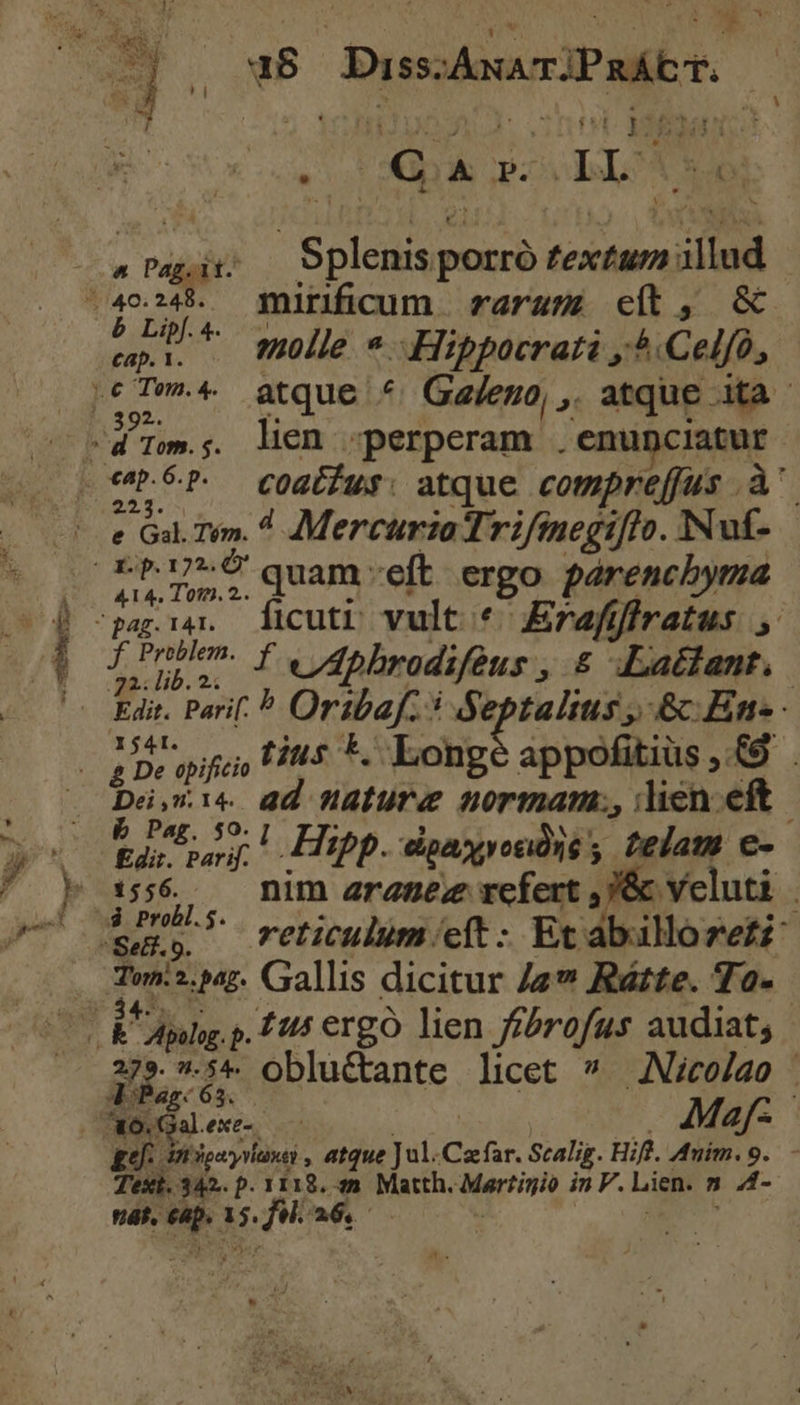 18 Diss. ANAT. PRACT.
CAP. II.
Splenis porrò textum illud
mirificum rarum eſt, &
molle a Hippocrati, b Celſò,
atque c Galeno, atque ita
lien perperam enunciatur
coactus atque compreſſus à
d Mercurio Triſmegiſto. Nuſ-
quam eſt ergo párenchyma
ſicuti vult e Eraſiſtratus,
f Aphrodiſéus, g Lactant.
h Oribaſ. i Septalius, & En-
tius k. Longè appoſitiùs, &
ad naturæ normam, lien eſt
l Hipp. ἀραχνοειδὴς, telam e-
nim araneæ refert, & veluti
reticulum eſt: Et ab illo reti
Gallis dicitur la m Rátte. To-
tus ergò lien fibroſus audiat,
obluctante licet n Nicolao
Maſ-
a Pag. 11.
40. 248.
b Lipſ. 4.
cap. 1.
c Tom. 4.
392.
d Tom. 5.
cap. 6. p.
223.
e Gal. Tom.
1. p. 172. &
414. Tom. 2.
pag. 141.
f Problem.
72. lib. 2.
Edit. Pariſ.
1541.
g De opificio
Dei, n. 14.
h Pag. 50.
Edit. Pariſ.
1556.
i Probl. 5.
Sect. 9.
Tom. 2. pag.
34.
k Apolog. p.
279. n. 54.
l Pag. 63.
10. Gal. exe-
geſ. in, atque Jul. Cæſar. Scalig. Hiſt. Anim. 9.
Text. 342. p. 1118. m Matth. Martinio in V. Lien. n A-
nat. cap. 15. fol. 26.